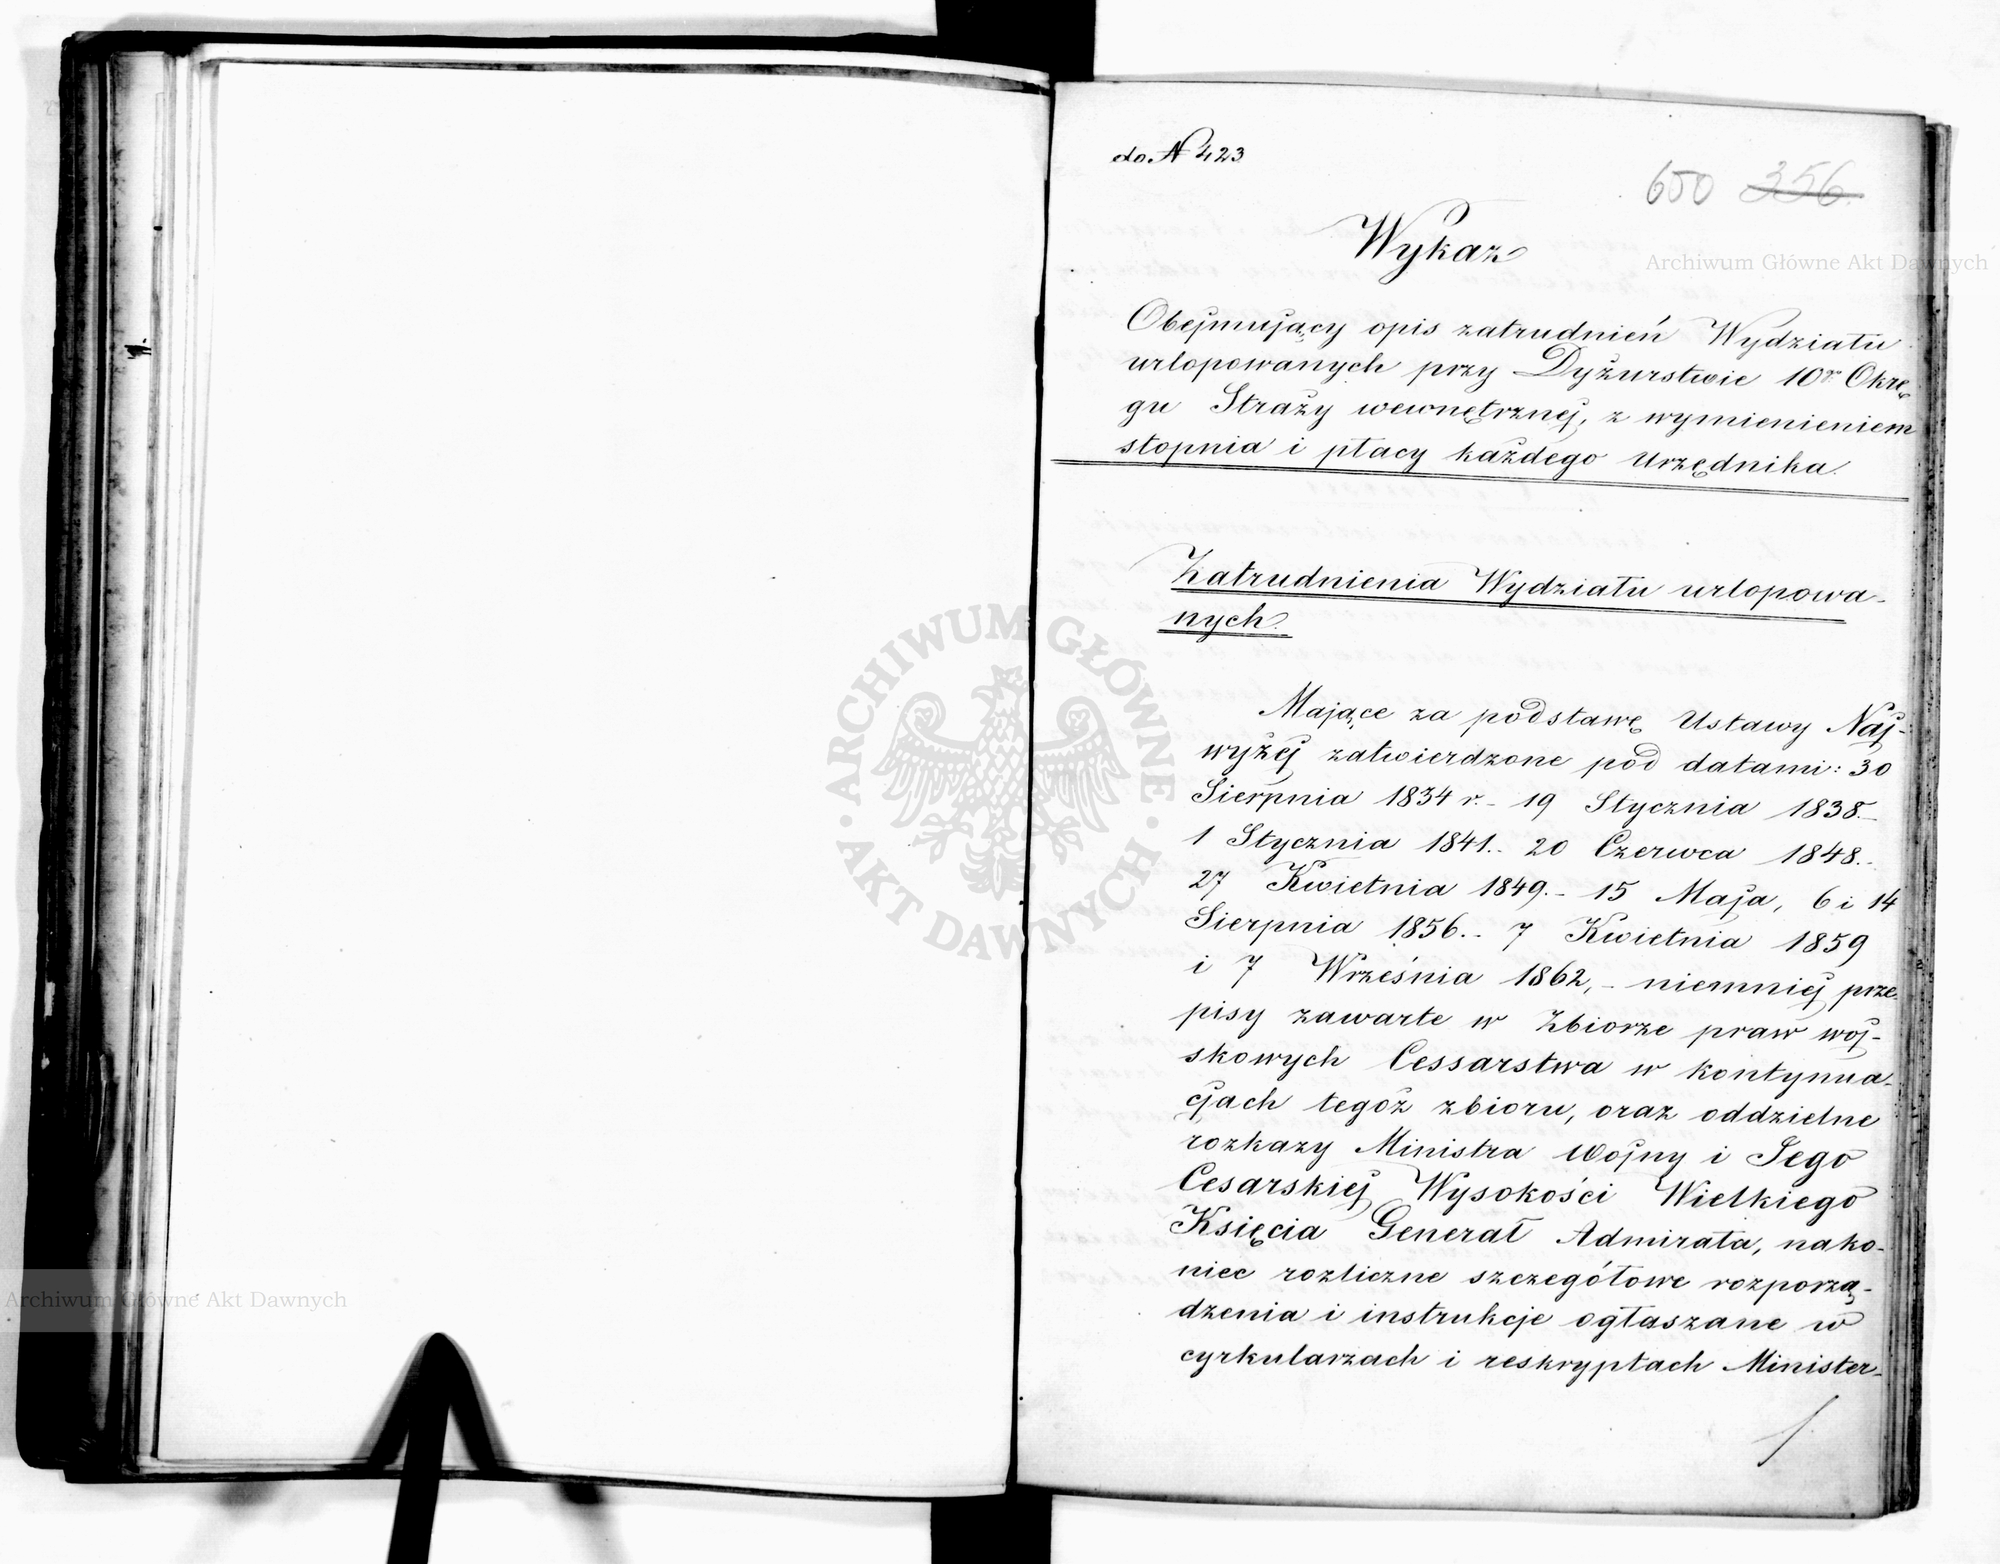 do № 423
650 356
Wykaz
Obejmujący opis zatrudnień Wydziału
urlopowanych przy Dyżurstwie 10go Okrę
gu Straży wewnętrznej, z wymienieniem
stopnia i płacy każdego Urzędnika.
Zatrudnienia Wydziału urlopowa-
nych.
Mające za podstawę Ustawy Naj-
wyżej zatwierdzone pod datami: 30
Sierpnia 1834 r. - 19 Stycznia 1838. -
1 Stycznia 1841. - 20 Czerwca 1848. -
27 Kwietnia 1849. - 15 Maja, 6 i 14
Sierpnia 1856. - 7 Kwietnia 1859
i 7 Września 1862, - niemniej prze-
pisy zawarte w Zbiorze praw woj-
skowych Cessarstwa w kontynua-
cjach tegoż zbioru, oraz oddzielne
rozkazy Ministra Wojny i Jego
Cesarskiej Wysokości Wielkiego
Księcia Generał Admirała, nako-
niec rozliczne szczegółowe rozporzą-
dzenia i instrukcje ogłaszane w
cyrkularzach i reskryptach Minister-
1
Archiwum Główne Akt Dawnych
Archiwum Główne Akt Dawnych
ARCHIWUM GŁÓWNE
AKT DAWNYCH